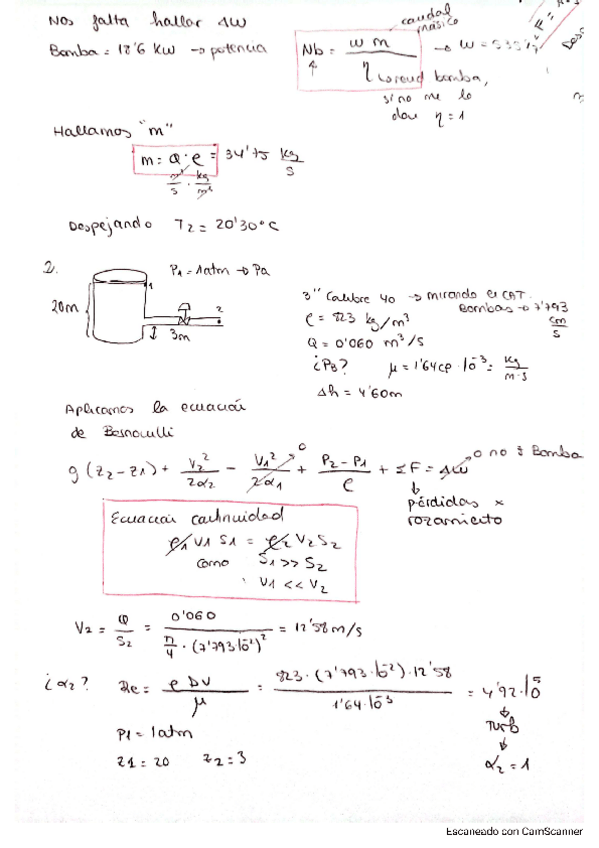 Nos falta hallar ΔW
Bomba = 18'6 KW → potencia
Nb = W m / η
caudal másico
→ W = 535'
bomba,
si no me lo
dan η = 1
Hallamos "m"
m = Q · ρ = 34'75 kg/s
m³/s · kg/m³
Despejando T2 = 20'30°C
2.
P1 = 1atm → Pa
20m
1
2
3m
3" Calibre 40 → mirando el CAT.
Bombas → 7'793 cm/s
ρ = 823 kg/m³
Q = 0'060 m³/s
¿PB? μ = 1'64cp · 10⁻³ = kg/m·s
Δh = 4'60m
Aplicamos la ecuación
de Bernoulli
g (Z2 - Z1) + V2²/2α2 - V1²/2α1 + P2 - P1/ρ + ΣF = ΔW
0
0 no ∃ Bomba
pérdidas x
rozamiento
Ecuación continuidad
ρ1 V1 S1 = ρ2 V2 S2
como S1 >> S2
V1 << V2
V2 = Q/S2 = 0'060 / π/4 · (7'793·10⁻²)² = 12'58 m/s
¿α2? Re = ρ D V / μ = 823 · (7'793·10⁻²) · 12'58 / 1'64·10⁻³ = 4'92·10⁵
Turb
α2 = 1
P1 = 1atm
Z1 = 20 Z2 = 3
Escaneado con CamScanner